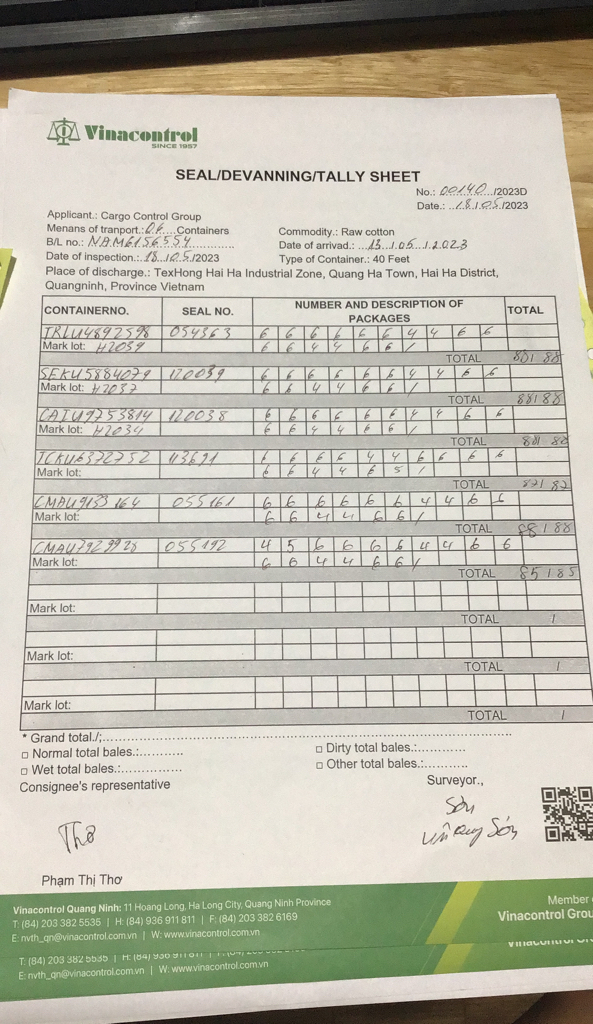 Vinacontrol
SINCE 1957
SEAL/DEVANNING/TALLY SHEET
No.: 00140 /2023D
Date.: 18/05/2023
Applicant.: Cargo Control Group
Menans of tranport.: 06 Containers
Commodity.: Raw cotton
B/L no.: NAM6156554
Date of arrivad.: 13/05/2023
Date of inspection.: 18/05/2023
Type of Container.: 40 Feet
Place of discharge.: TexHong Hai Ha Industrial Zone, Quang Ha Town, Hai Ha District,
Quangninh, Province Vietnam
CONTAINERNO. SEAL NO. NUMBER AND DESCRIPTION OF PACKAGES TOTAL
TRLU4892598 054363 6 6 6 6 6 6 4 4 6 6
Mark lot: H2039 6 6 4 4 6 6 /
TOTAL 88/88
SEKU5884079 120039 6 6 6 6 6 6 4 4 6 6
Mark lot: H2037 6 6 4 4 6 6 /
TOTAL 88/88
CAIU9753814 120038 6 6 6 6 6 6 4 4 6 6
Mark lot: H2034 6 6 4 4 6 6 /
TOTAL
TCKU6372752 43691 6 6 6 6 4 4 6 6 6 6
Mark lot: 6 6 4 4 6 5 /
TOTAL 87/87
CMAU9133164 055161 6 6 6 6 6 6 4 4 6 6
Mark lot: 6 6 4 4 6 6 /
TOTAL 88/88
CMAU7929928 055192 4 5 6 6 6 6 4 4 6 6
Mark lot: 6 6 4 4 6 6 /
TOTAL 85/85
Mark lot:
TOTAL /
Mark lot:
TOTAL /
Mark lot:
TOTAL /
* Grand total./;
□ Normal total bales.:
□ Dirty total bales.:
□ Wet total bales.:
□ Other total bales.:
Consignee's representative
Surveyor.,
Thơ
Sơn
Sơn
Phạm Thị Thơ
Vinacontrol Quang Ninh: 11 Hoang Long, Ha Long City, Quang Ninh Province
T: (84) 203 382 5535 | H: (84) 936 911 811 | F: (84) 203 382 6169
E: nvth_qn@vinacontrol.com.vn | W: www.vinacontrol.com.vn
Member
Vinacontrol Grou
T: (84) 203 382 5535 | H: (84) 936 911 811
E: nvth_qn@vinacontrol.com.vn | W: www.vinacontrol.com.vn